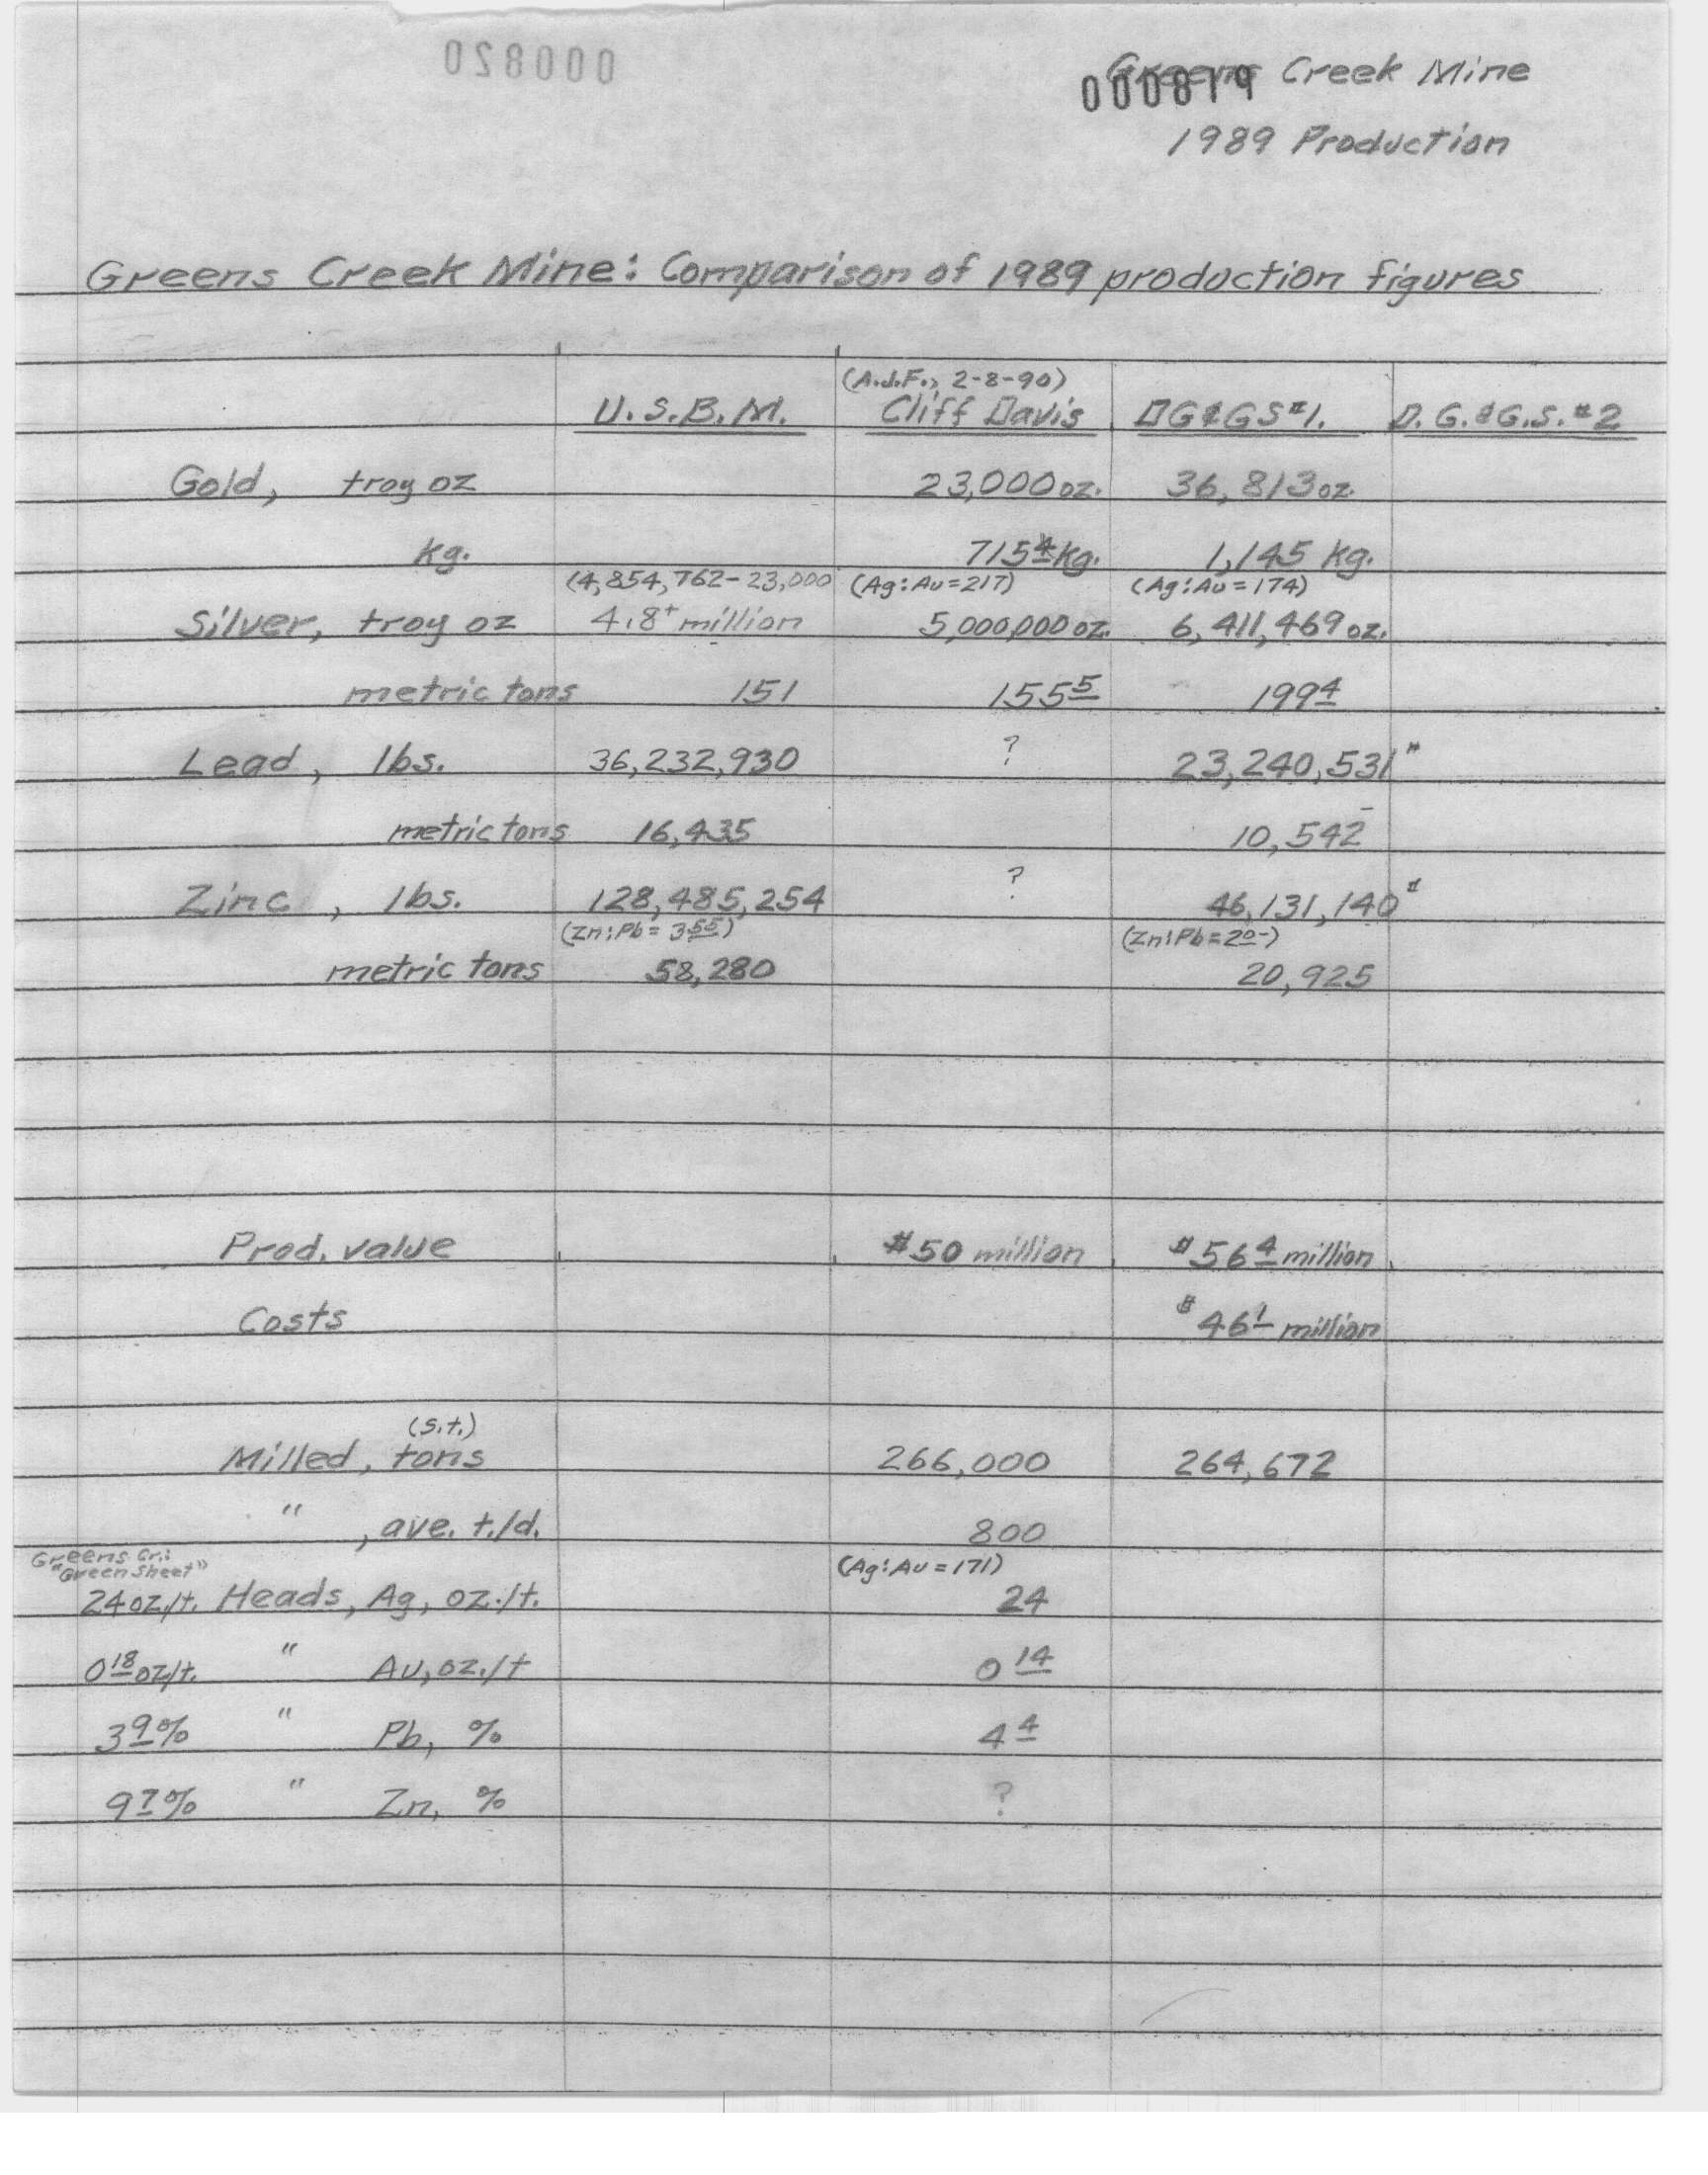 000820
Greens Creek Mine
000819
1989 Production
Greens Creek Mine: Comparison of 1989 production figures
(A.J.F., 2-8-90)
U.S.B.M. Cliff Davis DG&GS#1. D.G.&G.S.#2
Gold, troy oz 23,000 oz. 36,813 oz.
kg. 715.4 kg. 1,145 kg.
(4,854,762-23,000 (Ag:Au=217) (Ag:Au=174)
Silver, troy oz 4.8+ million 5,000,000 oz. 6,411,469 oz.
metric tons 151 155.5 199.4
Lead, lbs. 36,232,930 ? 23,240,531#
metric tons 16,435 10,542
Zinc, lbs. 128,485,254 ? 46,131,140#
(Zn:Pb= 3.55) (Zn:Pb=2.0-)
metric tons 58,280 20,925
Prod. value $50 million $56.4 million
Costs $46.1 million
(s.t.)
Milled, tons 266,000 264,672
" , ave. t./d. 800
Greens Cr.: (Ag:Au=171)
"Green Sheet"
24 oz./t. Heads, Ag, oz./t. 24
0.18 oz/t. " Au, oz./t 0.14
3.9% " Pb, % 4.4
9.7% " Zn, % ?